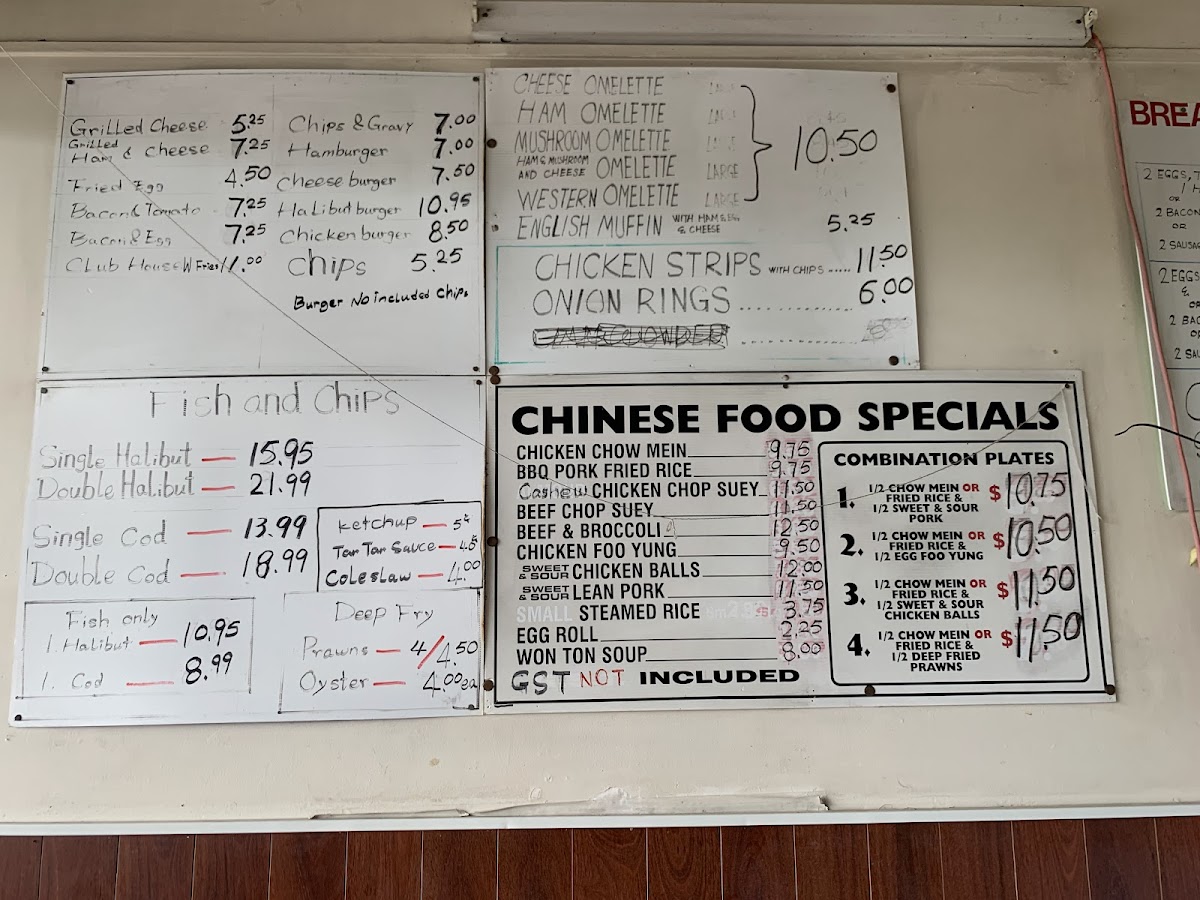 Grilled Cheese 5.25
Grilled Ham & Cheese 7.25
Fried Egg 4.50
Bacon & Tomato 7.25
Bacon & Egg 7.25
Club House W Fries 11.00
Chips & Gravy 7.00
Hamburger 7.00
Cheese burger 7.50
Halibut burger 10.95
Chicken burger 8.50
Chips 5.25
Burger No included Chips
CHEESE OMELETTE LARGE
HAM OMELETTE LARGE
MUSHROOM OMELETTE LARGE
HAM & MUSHROOM AND CHEESE OMELETTE LARGE
WESTERN OMELETTE LARGE
10.50
ENGLISH MUFFIN WITH HAM & EGG & CHEESE 5.25
CHICKEN STRIPS WITH CHIPS ..... 11.50
ONION RINGS ............... 6.00
Fish and Chips
Single Halibut — 15.95
Double Halibut — 21.99
Single Cod — 13.99
Double Cod — 18.99
Ketchup — 5¢
Tar Tar Sauce — .45
Coleslaw — 4.00
Fish only
1. Halibut — 10.95
1. Cod — 8.99
Deep Fry
Prawns — 4/4.50
Oyster — 4.00 ea
CHINESE FOOD SPECIALS
CHICKEN CHOW MEIN 9.75
BBQ PORK FRIED RICE 9.75
Cashew CHICKEN CHOP SUEY 11.50
BEEF CHOP SUEY 11.50
BEEF & BROCCOLI 12.50
CHICKEN FOO YUNG 9.50
SWEET & SOUR CHICKEN BALLS 12.00
SWEET & SOUR LEAN PORK 11.50
SMALL STEAMED RICE 3.75
EGG ROLL 2.25
WON TON SOUP 8.00
GST NOT INCLUDED
COMBINATION PLATES
1. 1/2 CHOW MEIN OR $10.75
FRIED RICE &
1/2 SWEET & SOUR
PORK
2. 1/2 CHOW MEIN OR $10.50
FRIED RICE &
1/2 EGG FOO YUNG
3. 1/2 CHOW MEIN OR $11.50
FRIED RICE &
1/2 SWEET & SOUR
CHICKEN BALLS
4. 1/2 CHOW MEIN OR $17.50
FRIED RICE &
1/2 DEEP FRIED
PRAWNS
BREA
2 EGGS, T
OR
2 BACON
OR
2 SAUSAG
2 EGGS
&
OR
2 BAC
OR
2 SAU